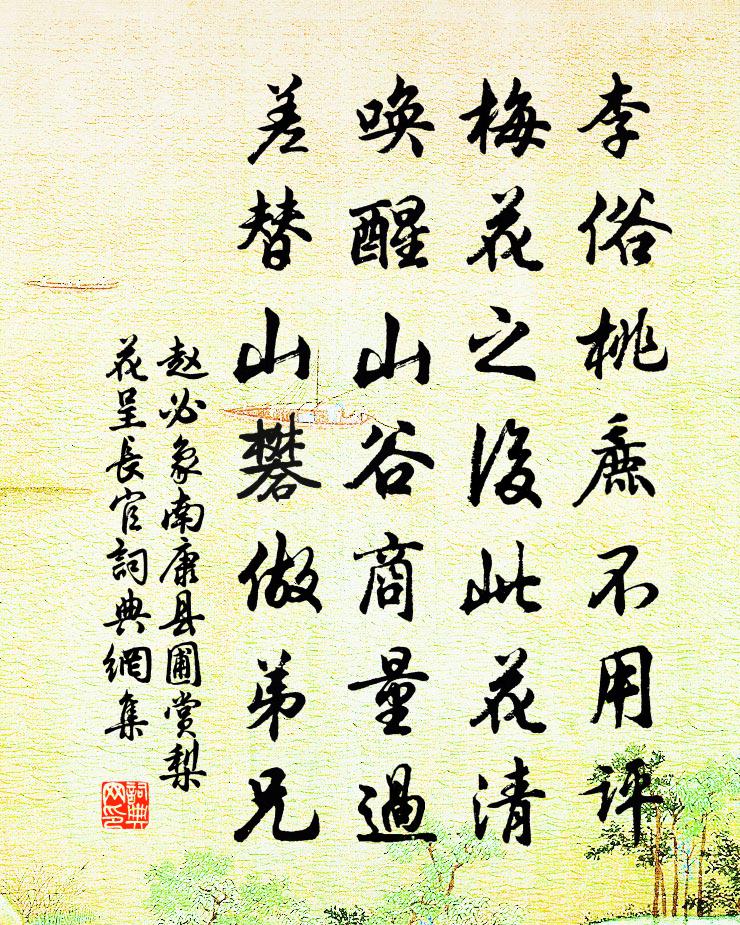 李俗桃麄不用評
梅花之後此花清
喚醒山谷商量過
差替山礬做弟兄
赵必象南康县圃賞梨
花呈長官詞典網集
詞典
网印